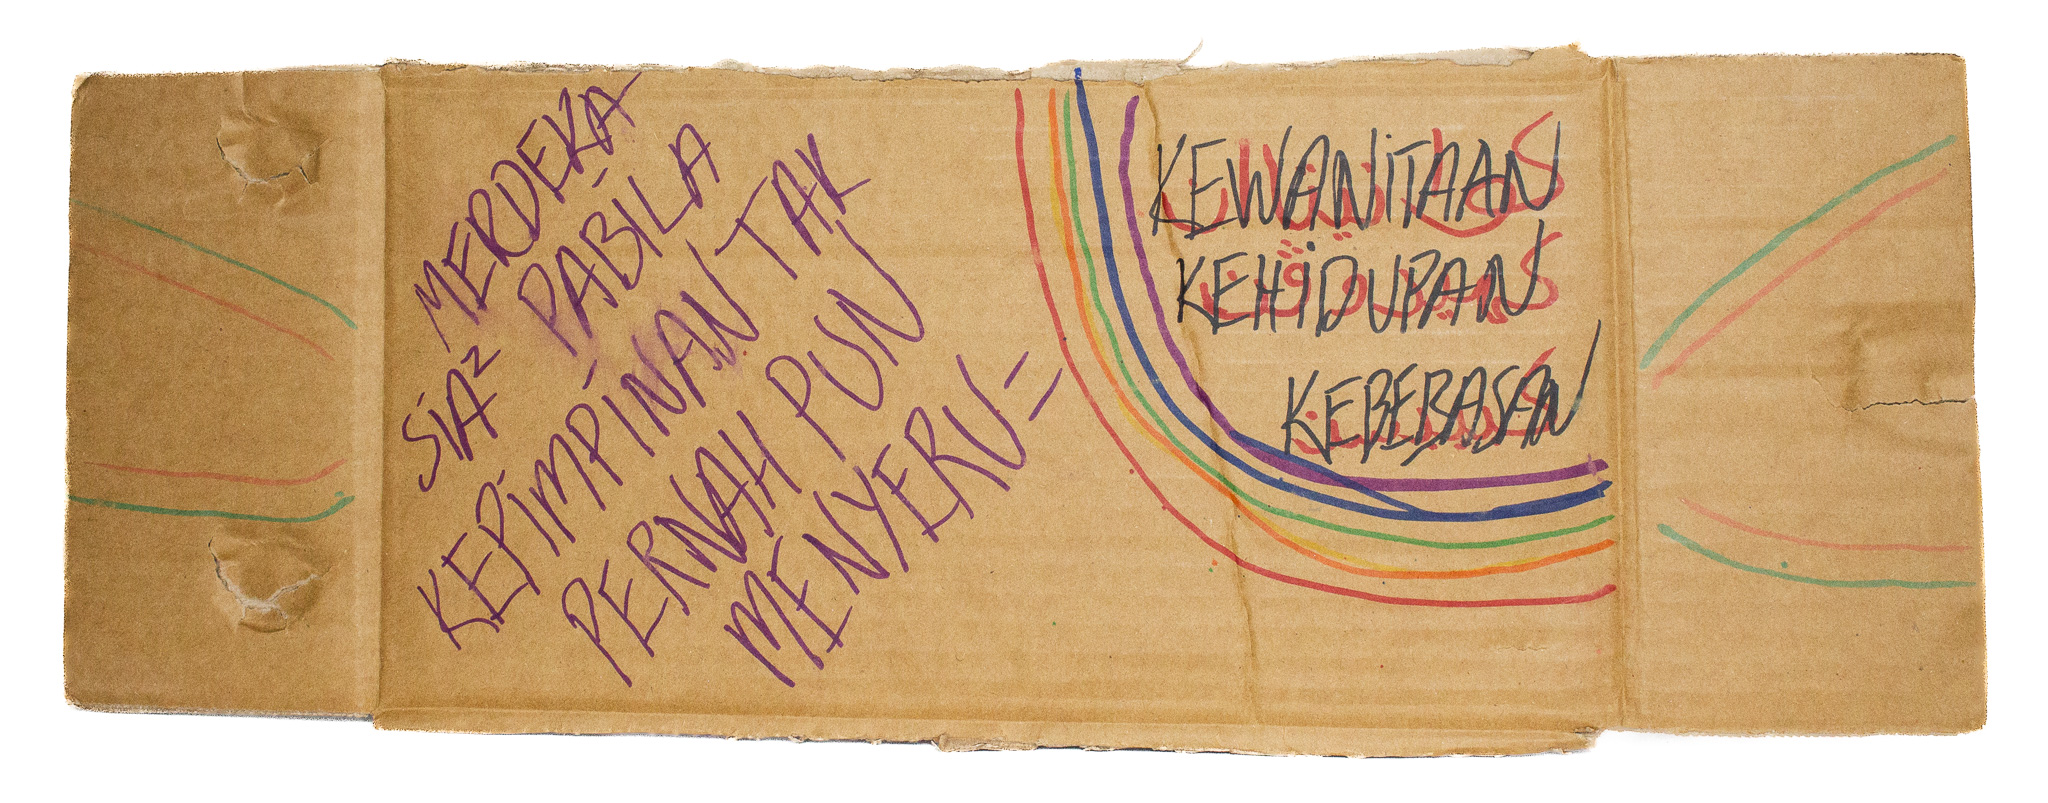 MERDEKA
SIA² PABILA
KEPIMPINAN TAK
PERNAH PUN
MENYERU =
KEWANITAAN
KEHIDUPAN
KEBEBASAN